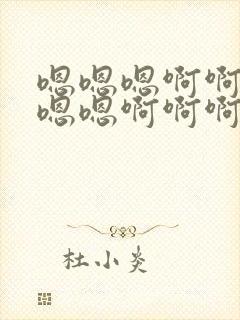 嗯嗯嗯啊啊
嗯嗯啊啊啊
杜小炎